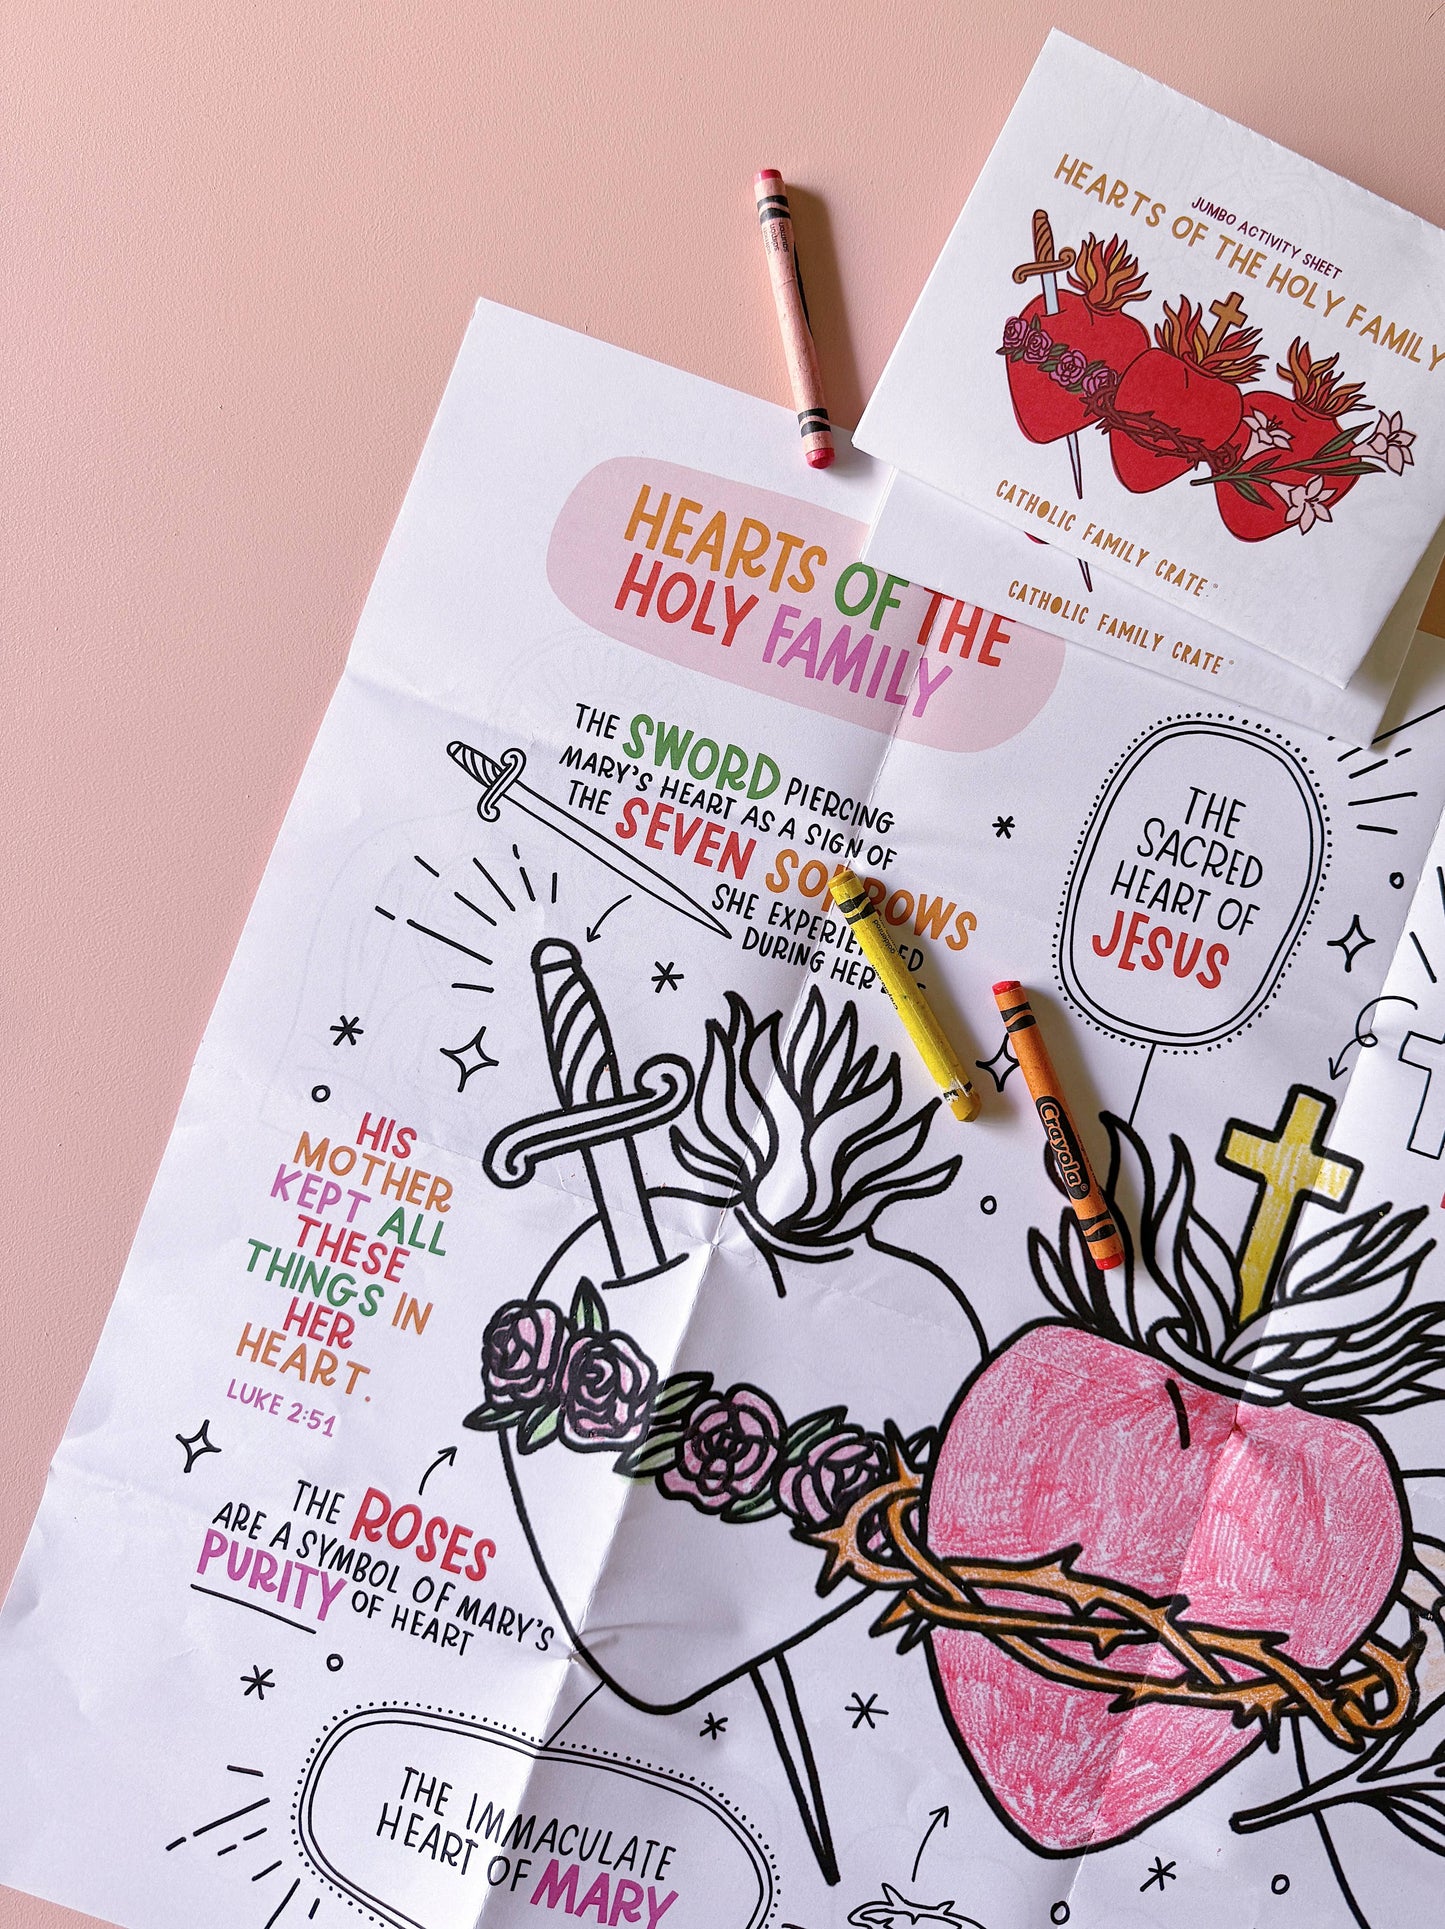 JUMBO ACTIVITY SHEET
HEARTS OF THE HOLY FAMILY
CATHOLIC FAMILY CRATE
CATHOLIC FAMILY CRATE
HEARTS OF THE
HOLY FAMILY
THE SWORD PIERCING
MARY'S HEART AS A SIGN OF
THE SEVEN SORROWS
SHE EXPERIENCED
DURING HER
THE
SACRED
HEART OF
JESUS
Crayola
HIS
MOTHER
KEPT ALL
THESE
THINGS IN
HER
HEART.
LUKE 2:51
THE ROSES
ARE A SYMBOL OF MARY'S
PURITY OF HEART
THE IMMACULATE
HEART OF MARY